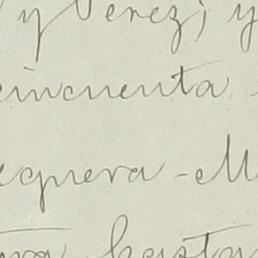 y Perez; y
cincuenta -
equera - M
hasta